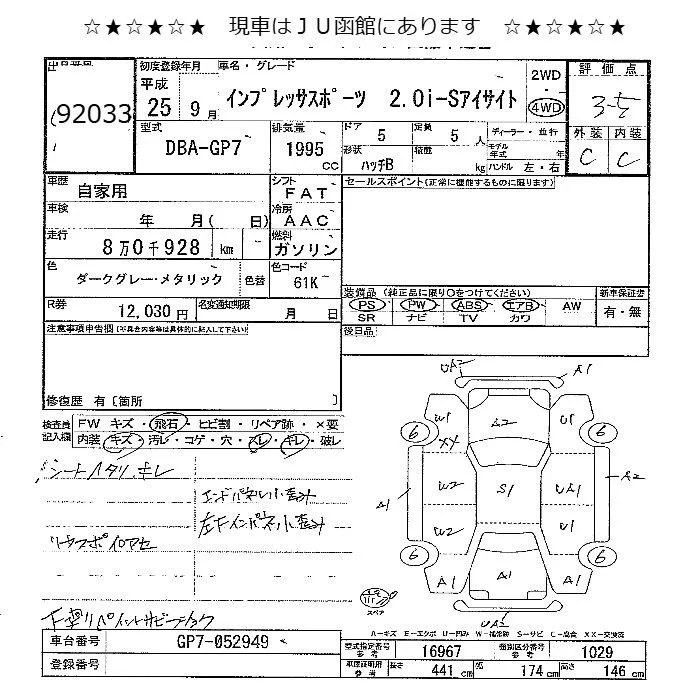 ☆★☆★☆★ 現車はＪＵ函館にあります ☆★☆★☆★
出品番号
92033
初度登録年月
平成
25 9月
車名・グレード
インプレッサスポーツ 2.0i-Sアイサイト
2WD
4WD
評価点
外装 内装
C C
型式
DBA-GP7
排気量
1995 CC
ドア 5
定員 5人
形状 ハッチB
積載 kg
ディーラー・並行
モデル年式 年
ハンドル 左・右
車歴 自家用
シフト FAT
セールスポイント(正常に機能するものに限ります)
車検 年 月(日)
冷房 AAC
走行 8万0千928 km
燃料 ガソリン
色 ダークグレー・メタリック
色替
色コード 61K
R券 12,030円
名変通知期限 月 日
装備品(純正品に限り○をつけてください)
PS PW ABS エアB AW
SR ナビ TV カワ
新車保証書
有・無
後日品
注意事項申告欄(不具合内容等は具体的に記入して下さい)
修復歴 有〔箇所 〕
検査員記入欄
FW キズ・飛石・ヒビ割・リペア跡・×要
内装 キズ・汚レ・コゲ・穴・スレ・キレ・破レ
シートヘタリ、キレ
エンドパネル小歪ミ
左Fインパネ小歪ミ
リヤスポイロアセ
UA2 A1
W1 A2 U1
XX
6 6
A1 W2 S1 UA1 A2
W2 U1
6 6
A1 A1 A1
スペア
A-キズ E-エクボ U-凹み W-補修跡 S-サビ C-腐食 XX-交換済
車台番号 GP7-052949
登録番号
型式指定番号 参考 16967
類別区分番号 参考 1029
車庫証明用 参考 長さ 441cm 幅 174cm 高さ 146cm